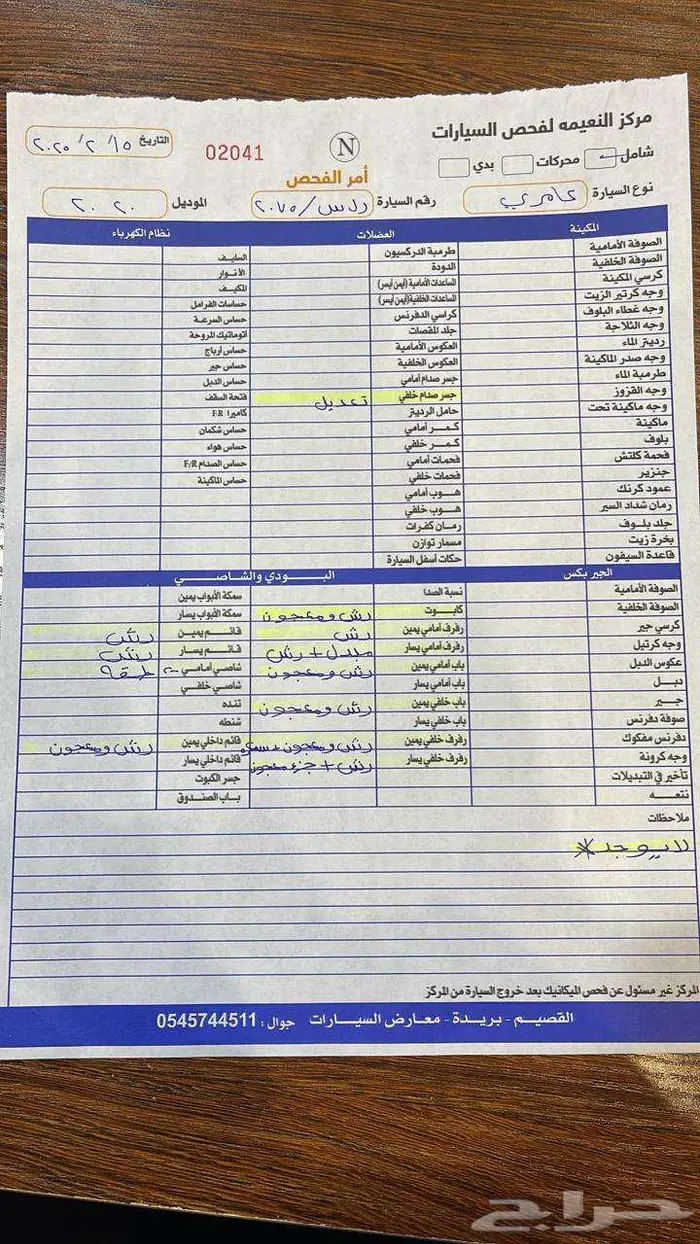 مركز النعيمه لفحص السيارات
التاريخ ٢٠٢٥/٢/١٥
02041
N
شامل محركات بدي
أمر الفحص
نوع السيارة كامري رقم السيارة ٢٠٧٥ الموديل ٢٠٢٠
المكينة العضلات نظام الكهرباء
الصوفة الأمامية طرمبة الدركسيون السليف
الصوفة الخلفية الدودة الأنوار
كرسي المكينة المساعدات الأمامية (أيمن أيسر) المكيف
وجه كرتير الزيت المساعدات الخلفية (أيمن أيسر) حساسات الفرامل
وجه غطاء البلوف كراسي الدفرنس حساس السرعة
وجه الثلاجة جلد المقصات اتوماتيك المروحة
رديتر الماء العكوس الأمامية حساس ارباج
وجه صدر الماكينة العكوس الخلفية حساس جير
طرمبة الماء جسر صدام أمامي حساس الدبل
وجه القزوز جسر صدام خلفي تعديل فتحة السقف
وجه ماكينة تحت حامل الرديتر كاميرا F.R
ماكينة كمر أمامي حساس شكمان
بلوف كمر خلفي حساس هواء
فحمة كلتش فحمات أمامي حساس الصدام F/R
جنزير فحمات خلفي حساس الماكينة
عمود كرنك هوب أمامي
رمان شداد السير هوب خلفي
جلد بلوف رمان كفرات
بخرة زيت مسمار توازن
قاعدة السيفون حكات أسفل السيارة
الجير بكس البودي والشاصي
الصوفة الأمامية نسبة الصدا سمكة الأبواب يمين
الصوفة الخلفية كابوت رش ومعجون سمكة الأبواب يسار
كرسي جير رفرف أمامي يمين رش قائم يمين رش
وجه كرتيل رفرف أمامي يسار مبدل + رش قائم يسار رش
عكوس الدبل باب أمامي يمين رش ومعجون شاصي أمامي طقة
دبل باب أمامي يسار شاصي خلفي
جير باب خلفي يمين رش ومعجون تنده
صوفة دفرنس باب خلفي يسار شنطه
دفرنس مفكوك رفرف خلفي يمين رش ومعجون + قائم داخلي يمين رش ومعجون
وجه كرونة رفرف خلفي يسار رش + جزء معجون قائم داخلي يسار
تأخير في التبديلات جسر الكبوت
نتعه باب الصندوق
ملاحظات
لا يوجد *
المركز غير مسئول عن فحص الميكانيك بعد خروج السيارة من المركز
القصيم - بريدة - معارض السيارات جوال : 0545744511
حراج